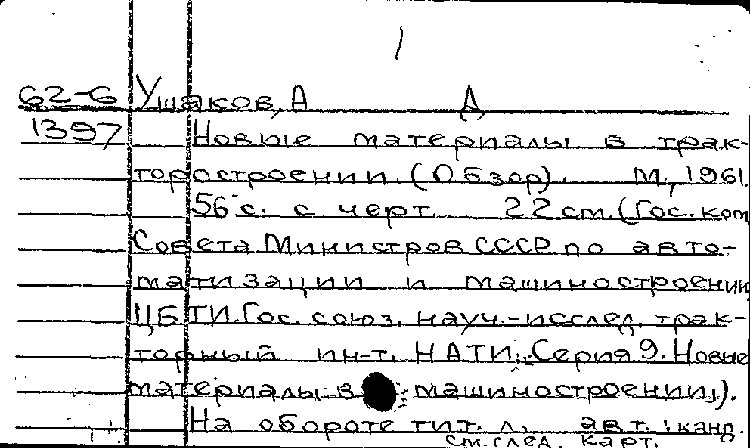 1
62-6 Ушаков, А Д
1397 Новые материалы в трак-
торостроении. (Обзор). М., 1961.
56 с. с черт. 22 см. (Гос. ком
Совета Министров СССР по авто-
матизации и машиностроении
ЦБТИ. Гос. союз. науч.-исслед. трак-
торный ин-т. НАТИ. Серия 9. Новые
материалы в машиностроении.).
На обороте тит. л. авт.: канд.
см. след. карт.